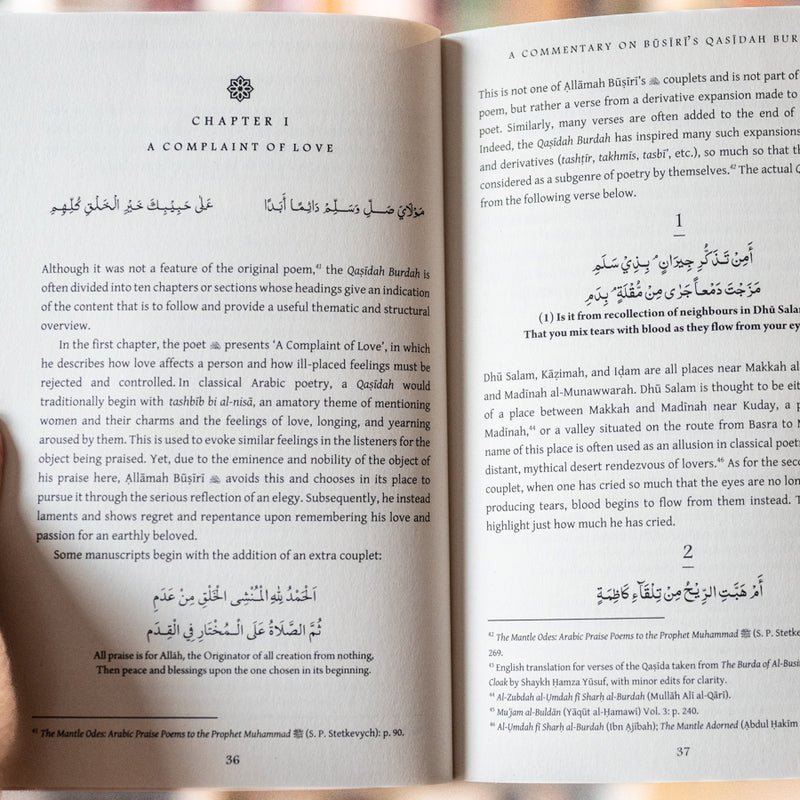 CHAPTER I
A COMPLAINT OF LOVE
مَوْلَايَ صَلِّ وَسَلِّمْ دَائِمًا أَبَدًا عَلَىٰ حَبِيْبِكَ خَيْرِ الْخَلْقِ كُلِّهِمِ
Although it was not a feature of the original poem,⁴¹ the Qaṣīdah Burdah is
often divided into ten chapters or sections whose headings give an indication
of the content that is to follow and provide a useful thematic and structural
overview.
In the first chapter, the poet presents ‘A Complaint of Love’, in which
he describes how love affects a person and how ill-placed feelings must be
rejected and controlled. In classical Arabic poetry, a Qaṣīdah would
traditionally begin with tashbīb bi al-nisā, an amatory theme of mentioning
women and their charms and the feelings of love, longing, and yearning
aroused by them. This is used to evoke similar feelings in the listeners for the
object being praised. Yet, due to the eminence and nobility of the object of
his praise here, Ạllāmah Būṣīrī avoids this and chooses in its place to
pursue it through the serious reflection of an elegy. Subsequently, he instead
laments and shows regret and repentance upon remembering his love and
passion for an earthly beloved.
Some manuscripts begin with the addition of an extra couplet:
اَلْحَمْدُ لِلّٰهِ الْمُنْشِی الْخَلْقِ مِنْ عَدَمِ
ثُمَّ الصَّلَاةُ عَلَى الْمُخْتَارِ فِي الْقِدَمِ
All praise is for Allāh, the Originator of all creation from nothing,
Then peace and blessings upon the one chosen in its beginning.
⁴¹ The Mantle Odes: Arabic Praise Poems to the Prophet Muhammad ﷺ (S. P. Stetkevych): p. 90.
36
A COMMENTARY ON BŪṢĪRĪ'S QASĪDAH
This is not one of Ạllāmah Būṣīrī’s couplets and is not part of
poem, but rather a verse from a derivative expansion made to
poet. Similarly, many verses are often added to the end of
Indeed, the Qaṣīdah Burdah has inspired many such expansions
and derivatives (tashṭīr, takhmīs, tasbī’, etc.), so much so that
considered as a subgenre of poetry by themselves.⁴² The actual
from the following verse below.
1
أَمِنْ تَذَكُّرِ جِيرَانٍ بِذِيْ سَلَمِ
مَزَجْتَ دَمْعاً جَرٰى مِنْ مُّقْلَةٍ بِدَمِ
(1) Is it from recollection of neighbours in Dhū
That you mix tears with blood as they flow from your
Dhū Salam, Kāẓimah, and Iḍam are all places near Makkah
and Madīnah al-Munawwarah. Dhū Salam is thought to be
of a place between Makkah and Madīnah near Kuday, a
Madīnah,⁴⁴ or a valley situated on the route from Basra to
name of this place is often used as an allusion in classical
distant, mythical desert rendezvous of lovers.⁴⁶ As for the
couplet, when one has cried so much that the eyes are no
producing tears, blood begins to flow from them instead.
highlight just how much he has cried.
2
أَمْ هَبَّتِ الرِّيْحُ مِنْ تِلْقَاءِ كَاظِمَةٍ
⁴² The Mantle Odes: Arabic Praise Poems to the Prophet Muhammad ﷺ (S. P.
269.
⁴³ English translation for verses of the Qaṣīda taken from The Burda of
Cloak by Shaykh Ḥamza Yūsuf, with minor edits for clarity.
⁴⁴ Al-Zubdah al-Ụmdah fī Sharḥ al-Burdah (Mullāh Alī al-Qārī).
⁴⁵ Mu‘jam al-Buldān (Yāqūt al-Ḥamawī) Vol. 3: p. 240.
⁴⁶ Al-Ụmdah fī Sharḥ al-Burdah (Ibn Ạjībah); The Mantle Adorned (Ạbdul Ḥakīm
37